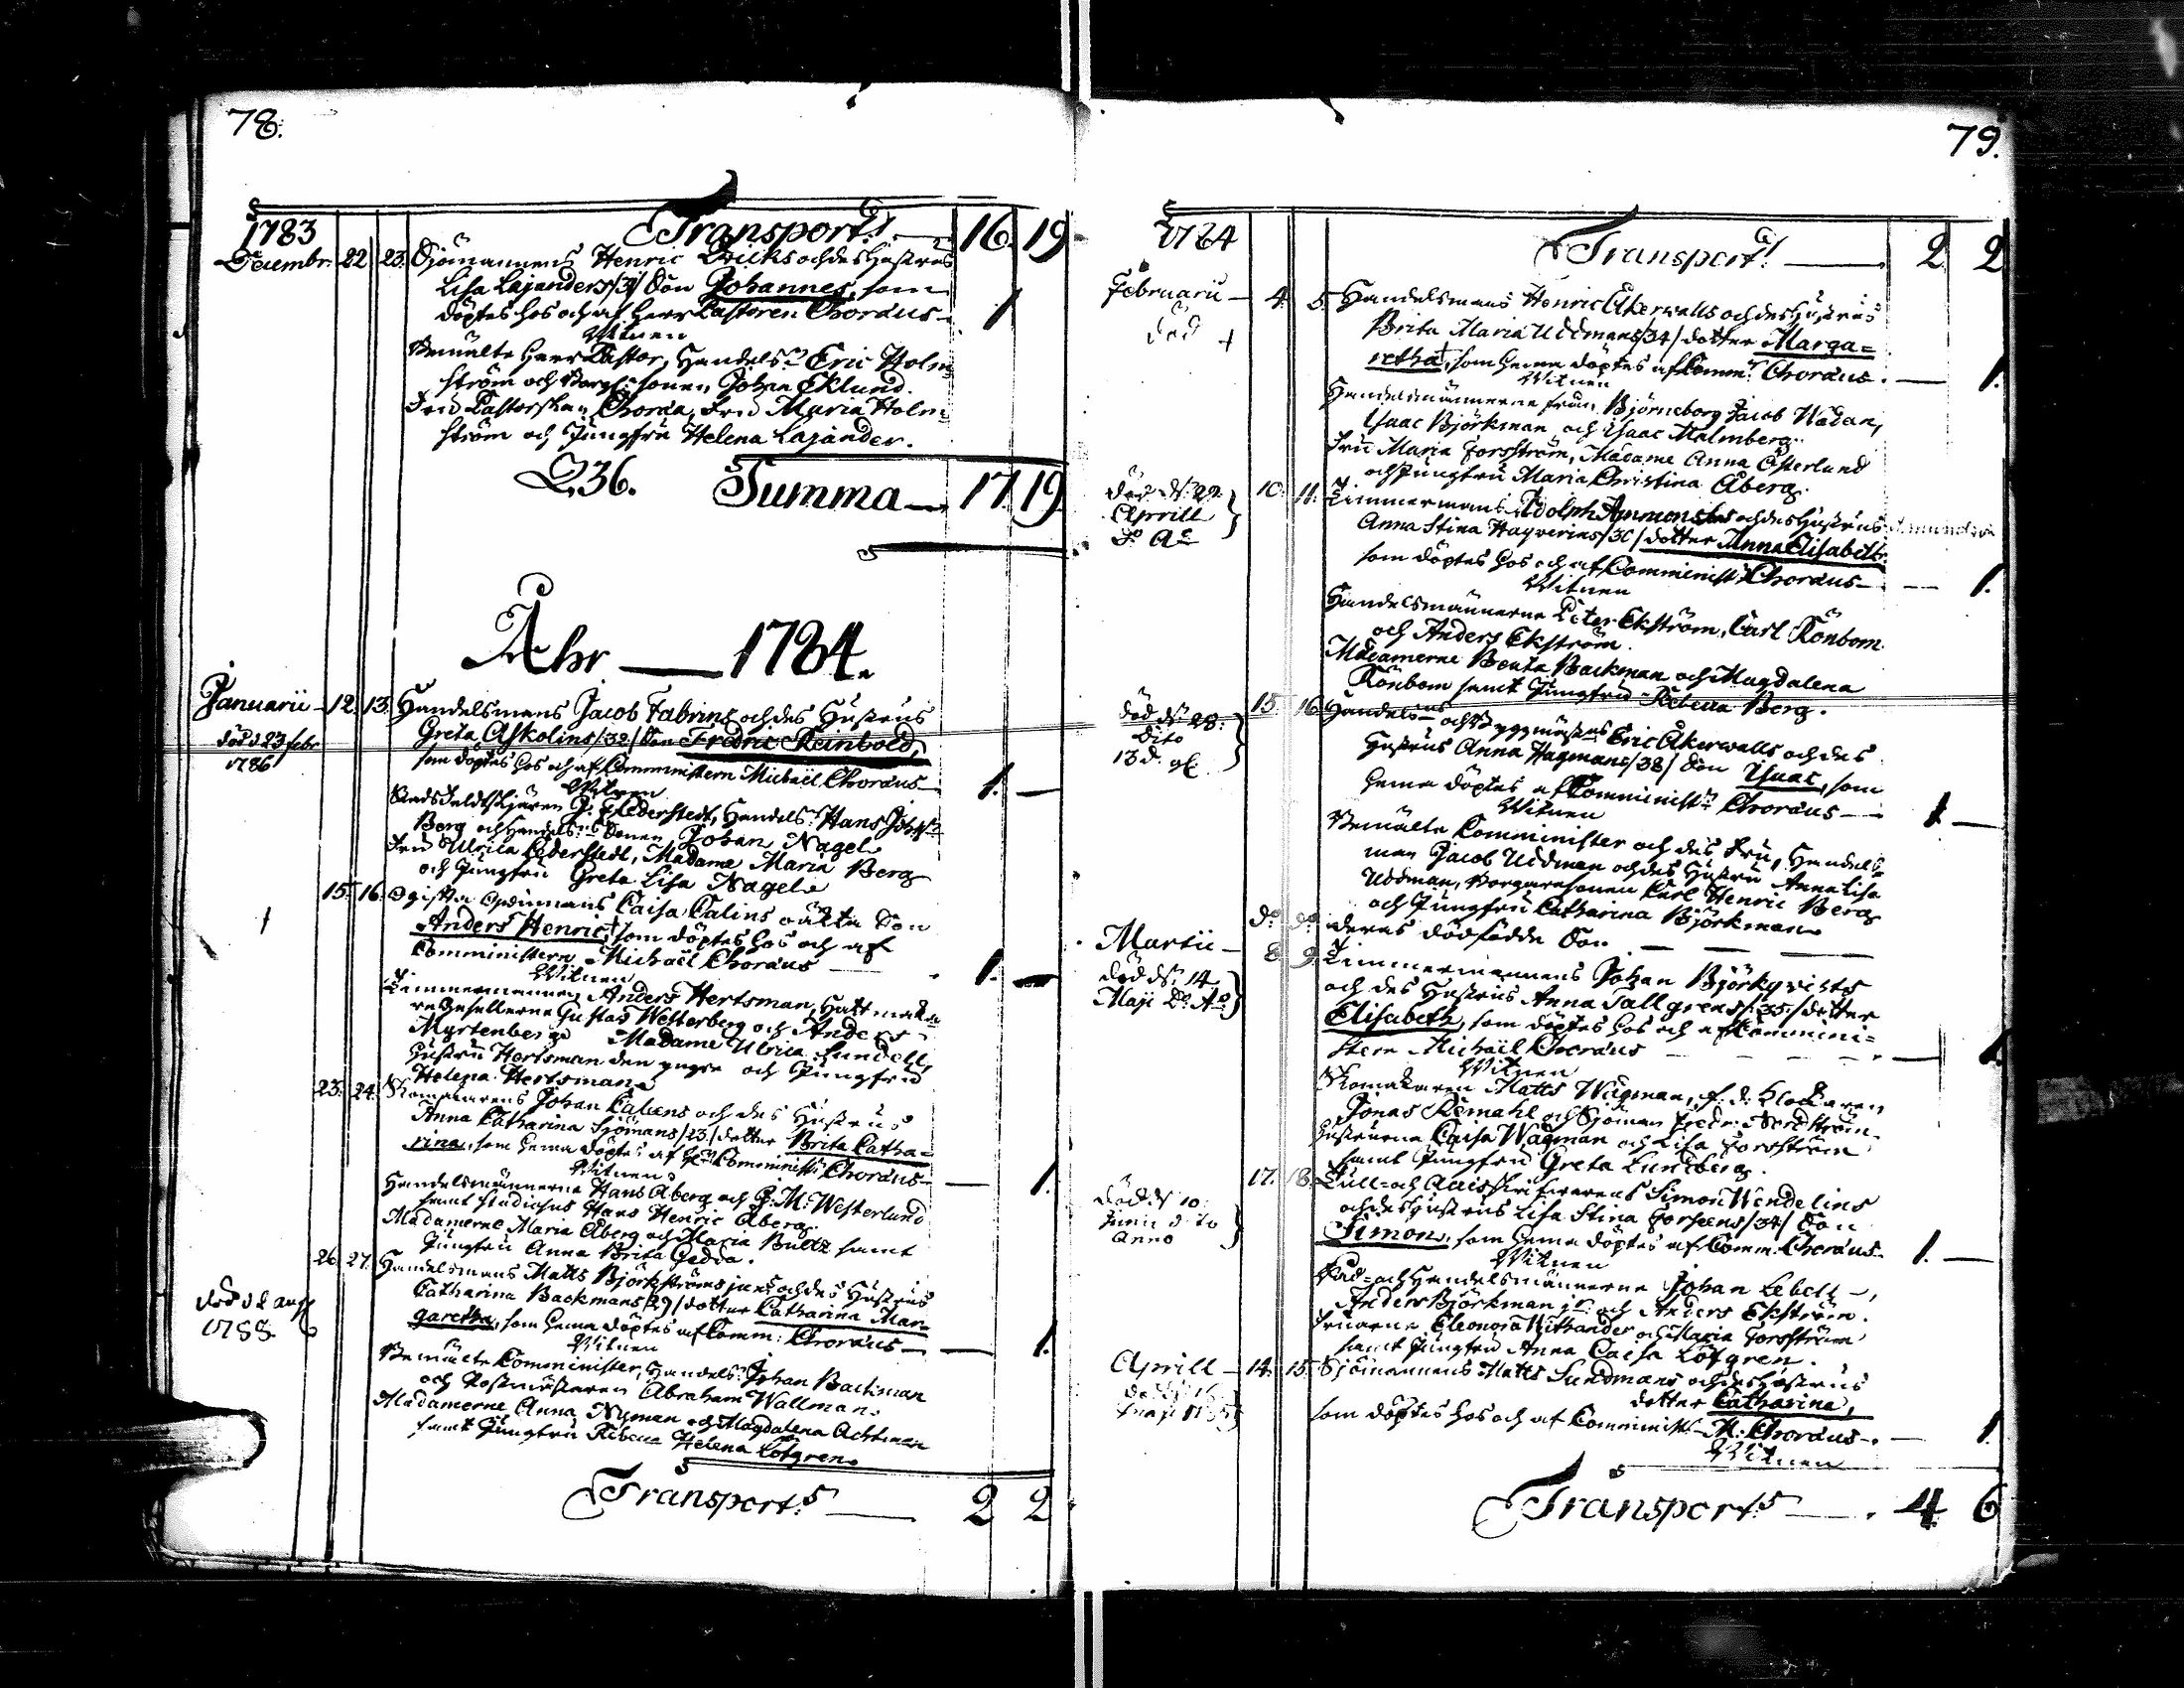 78.
Transport! — 16. 19
1783
Decembr. 22 23. Sjömannens Henric Dricks och des Hustrus
Lisa Lajanders /31/ Son Johannes, som
döptes hos och af Herr Pastoren Choræus — 1
Vitnen
Bemälte Herr Pastor, Handels:n Eric Holm
ström och Borg: sonen Johan Eklund.
Fru Pastorskan Choræa, Fru Maria Holm
ström och Jungfru Helena Lajander.
S. 36. Summa — 17. 19
Åhr — 1784.
Januarii — 12. 13. Handelsmans Jacob Fabrins och des Hustrus
död d 23 febr
1786
Greta Askolins /32/ Son Fredric Reinhold,
som döptes hos och af Comministern Michaël Choræus — 1. —
Vitnen
Stadsfeldtskjären J. F. Cederstedt, Handels:n Hans Joh:n
Berg och Handels:ns Sonen Johan Nagel
Fru Ulrica Cederstedt, Madame Maria Berg
och Jungfru Greta Lisa Nagel.
15. 16. Ogifta Qvinnans Caisa Calins oäkta Son
†
Anders Henric† som döptes hos och af
Comministern Michaël Choræus — 1. —
Vitnen
Timmermannen Anders Hertsman, Hattmaka
re Gesellerne Gustav Westerberg och Anders
Myrtenberg. Madame Ulrica Lundell,
Hustru Hertsman den yngre och Jungfru
Helena Hertsman.
23. 24. Skomakarens Johan Caleens och des Hustrus
Anna Catharina Sjömans /23/ dotter Brita Catha=
rina, som hema döptes af H:r Comminist:n Choræus — 1.
Vitnen
Handelsmännerne Hans Åberg och J. M. Westerlund
samt Studiosus Hans Henric Åberg.
Madamerne Maria Åberg och Maria Bultz samt
Jungfru Anna Brita Gedda.
26. 27. Handelsmans Matts Björkströms jun:s och des Hustrus
död d 2 aug
1788
Catharina Backmans /29/ dotter Catharina Mar-
garetha, som hema döptes af Comm: Choræus — 1.
Vitnen
Bemälte Comminister, Handels:n Johan Backman
och Postmästaren Abraham Wallman.
Madamerne Anna Nyman och Magdalena Achtman
samt Jungfru Rebecca Helena Löfgren.
Transport:s — 2 2
79.
1784
Transport! — 2 2
Februarii — 4. 5. Handelsmans Henric Åkerwalls och des Hustrus
död †
Brita Maria Uddmans /34/ dotter Marga=
retha†, som hema döptes af Comm:r Choræus. — 1.
Vitnen
Handelsmännerne från Björneborg Jacob Wadan,
Isaac Björkman och Isaac Malmberg.
Fru Maria Forsström, Madame Anna Österlund
och Jungfru Maria Christina Åberg.
död d: 22
Aprill
10. 11. Timmermans Adolph Ammons och des Hustrus
Anna Stina Hagverins /30/ dotter Anna Elisabeth
som döptes hos och af Comminist:n Choræus — 1.
Vitnen
Handelsmännerne Peter Ekström, Carl Rönbom
och Anders Ekström.
Madamerne Beata Backman och Magdalena
Rönbom samt Jungfru Rebecca Berg.
död d: 28.
Dito
15. 16. Handels:ns och Byggmästarens Eric Åkerwalls och des
Hustrus Anna Hagmans /38/ Son Isaac, som
hema döptes af Comminist:n Choræus — 1 —
Vitnen
Bemälte Comminister och des Fru, Handels
man Jacob Uddman och des Hustru Anna Lisa
Uddman, Borgaresonen Carl Henric Berg
och Jungfru Catharina Björkman
d:o d:o deras dödfödde Son — — —
Martii — 8. 9. Timmermannens Johan Björkqvists
död d: 14
Maji D:o A:o
och des Hustrus Anna Tallgrens /35/ dotter
Elisabeth, som döptes hos och af Commini=
stern Michaël Choræus — 1
Vitnen
Skomakaren Matts Wågman, f. d. Klockaren
Jonas Remahl och Sjöman Fredr. Nordström
Hustruerna Caisa Wågman och Lisa Forsström
samt Jungfru Greta Lundberg.
död d: 10
Junii dito
Anno
17. 18. Tull- och Accisskrifvarens Simon Wendelins
och des Hustrus Lisa Stina Forseens /34/ Son
Simon, som hema döptes af Comm: Choræus. 1. —
Vitnen
Råd- och Handelsmännerne Johan Lebell,
Anders Björkman j:r och Anders Ekström.
Fruarne Eleonora Withander och Maria Forsström
samt Jungfru Anna Caisa Löfgren.
Aprill — 14. 15. Sjömannens Matts Sundmans och des Hustrus
dotter Catharina,
som döptes hos och af Comminist:n M: Choræus — 1
Vitnen
Transport:s — 4 6